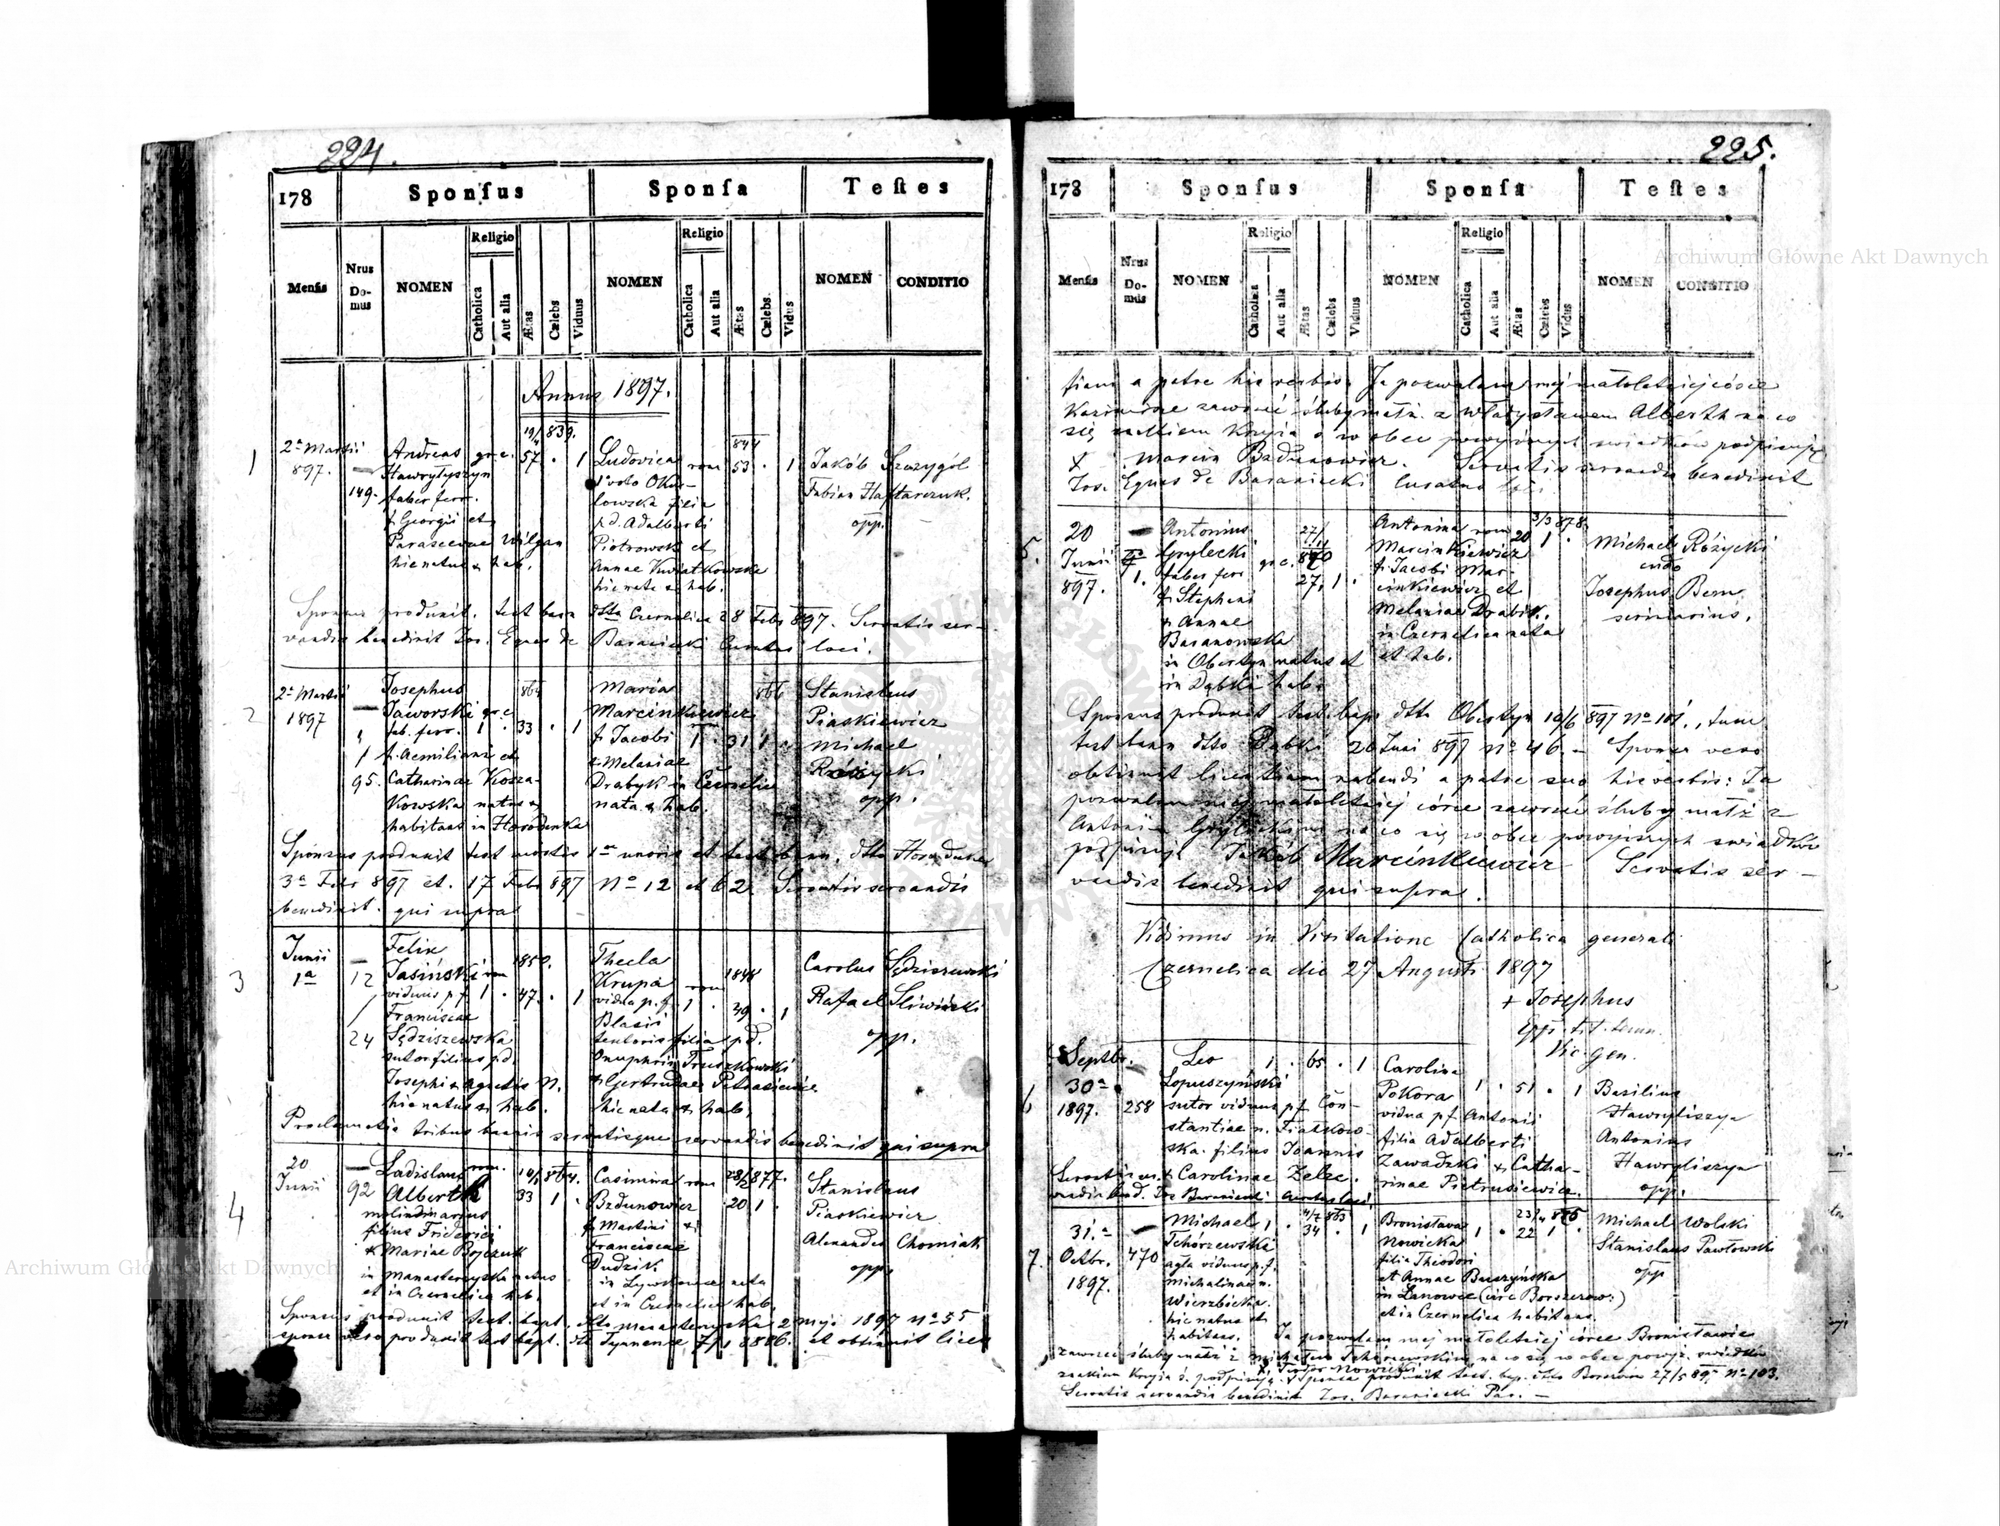 224.
178 Sponſus Sponſa Teſtes
Menſis Nrus Do- mus NOMEN Religio Catholica Aut alia Ætas Cælebs Viduus NOMEN Religio Catholica Aut alia Ætas Cælebs. Vidus NOMEN CONDITIO
Annus 1897.
1
2ª Martii
897.
149.
Andreas gr. c.
Hawryłyszyn
faber ferr.
f. Georgii et
Parascevae Wilgan
hic natus & hab.
19/4 839.
57 . 1
Ludovica rom
1º voto Oku-
lowska filia
p.d. Adalberti
Piotrowski et
Annae Kwiatkowska
hic nata & hab.
844
53 . 1
Jakób Szczygół
Fabian Haftarczuk.
opp.
Sponsus produxit test. bann dtto Czernelica 28 Febr 897. Servatis ser-
vandis benedixit Jos. Eques de Baraniecki Curatus loci.
2
2ª Martii
1897
1
95.
Josephus
Jaworski gr. c.
fab. ferr. 1 . 33 . 1
f. Aemiliani et
Catharinae Kosza-
kowska natus &
habitans in Horodenka
864
Maria
Marcinkiewicz rom
f. Jacobi 1 . 31 1
& Melaniae
Drabyk in Czernelica
nata & hab.
866
Stanislaus
Piaskiewicz
Michael
Różycki
opp.
Sponsus produxit test mortis 1ae uxoris et test bann. dtto Horodenka
3ª Febr 897 et. 17 Febr 897 Nº 12 et 62. Servatis servandis
benedixit. qui supra
3
Junii
1ª
12
24
Felix
Jasiński rom
viduus p.f. 1 . 47 . 1
Franciscae
Sędziszewska
sutor filius p.d.
Josephi & Agnetis N.
hic natus & hab.
1850.
Thecla
Krupa rom
vidua p.f. 1 . 49 . 1
Blasii
textoris filia p.d.
Onuphrii Truszkowski
& Gertrudae Petrasiewicz
hic nata & hab.
1848
Carolus Sędziszewski
Rafael Śliwiński
opp.
Proclamatis tribus bannis servatisque servandis benedixit qui supra
4
20
Junii
92
Ladislaus rom.
Alberth 33 1 .
molindinarius
filius Friderici
& Mariae Bojczuk
in Manasterzyska natus
et in Czernelica hab.
14/1 864.
Casimira rom
Bzdunowicz 20 1 .
f. Martini &
Franciscae
Dudzik
in nata
et in Czernelica hab.
28/2 877.
Stanislaus
Piaskiewicz
Alexander Chomiak
opp.
Sponsus produxit test. bapt. dtto Manasterzyska 2 Maji 1897 Nº 55
sponsa vero produxit test bapt. dtto 7/1 1886. et obtinuit licen
225.
178 Sponſus Sponſa Teſtes
Menſis Nrus Do- mus NOMEN Religio Catholica Aut alia Ætas Cælebs Viduus NOMEN Religio Catholica Aut alia Ætas Cælebs Vidus NOMEN CONDITIO
tiam a patre his verbis. Ja pozwalam mej małoletniej córce
Kazimirze zawrzeć śluby małż. z Władysławem Alberth na co
się znakiem krzyża ś w obec powyższych świadków podpisuję
X Marcin Bzdunowicz. Servatis servandis benedixit
Jos. Eques de Baraniecki Curatus loci.
5.
20
Junii
897.
1.
Antonius
Grylecki gr. c.
faber ferr
f. Stephani
& Annae
Baranowska
in Obertyn natus et
in Dąbki hab.
27/11
870
27, 1 .
Antonina rom 20 1 .
Marcinkiewicz
f. Jacobi Mar-
cinkiewicz et
Melaniae Drabik.
in Czernelica nata
et hab.
3/3 878.
Michael Różycki
Josephus Bem
scriniarius.
Sponsus produxit test. bapt dtto Obertyn 10/6 897 Nº 101., tum
test bann dtto Dąbki 20 Juni 897 Nº 46. – Sponsa vero
obtinuit licentiam nubendi a patre suo his verbis: Ja
pozwalam mej małoletniej córce zawrzeć śluby małż z
Antonim Gryleckim na co się w obec powyższych świadków
podpisuję Jakób Marcinkiewicz Servatis ser-
vandis benedixit qui supra.
Vidimus in Visitatione Catholica generali
Czernelica die 27 Augusti 1897
+ Josephus
Epps. tit.
Vic gen.
6
Septbr.
30ª
1897.
258
Leo 1 . 65 . 1
Łopuszyński
sutor viduus p.f. Con-
stantiae n. Fiałkow-
ska. filius Joannis
& Carolinae Zelze.
Carolina
Pokora 1 . 51 . 1
vidua p.f. Antonii
filia Adalberti
Zawadzki & Catha-
rinae Pietrusiewicz.
Basilius
Hawryliszyn
Antonius
Hawryliszyn
opp.
Servatis ser-
vandis bened. Jos Baraniecki Curatus loci
7.
31.ª
Octbr.
1897.
470
Michael 1 . 34 . 1
Tchórzewski
agla viduus p.f.
Michalinae n.
Wierzbicka.
hic natus et
habitans.
4/7 863
Bronislava 1 . 22 1 .
Nowicka
filia Theodori
et Annae Buczyńska
in Łanowce (circ Borszczow:)
et in Czernelica habitans.
23/4 875
Michael Wolski
Stanislaus Pawłowski
opp
Ja pozwalam mej małoletniej córce Bronisławie
zawrzeć śluby małż z Michałem Tchórzewskim na co się w obec powyż. świadków
znakiem krzyża ś. podpisuję. X Teodor Nowicki. Sponsa produxit test. bap. dtto Borszczów 27/5 89 Nº 103.
Servatis servandis benedixit Jos. Baraniecki Par. –
Archiwum Główne Akt Dawnych
Archiwum Główne Akt Dawnych